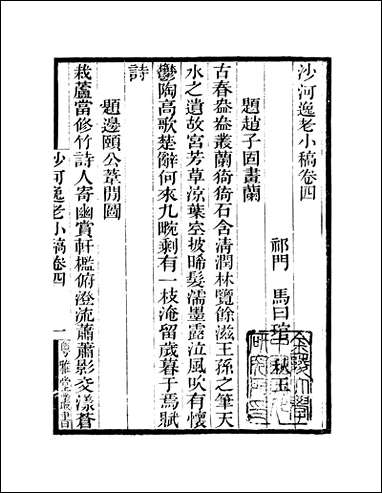 沙河逸老小稿卷四
祁門　馬曰琯　秋玉
題趙子固畫蘭
古春盎盎叢蘭猗猗石含清潤林覽餘滋王孫之筆天
水之遺故宮芳草涼葉空披晞髮濡墨露泣風吹有懷
鬱陶高歌楚辭何來九畹剩有一枝淹留歲暮于焉賦
詩
題邊頤公葦間圖
栽蘆當修竹詩人寄幽賞軒檻俯澄流蕭蕭影交漾蒼
沙河逸老小稿卷四
一
粵雅堂叢書